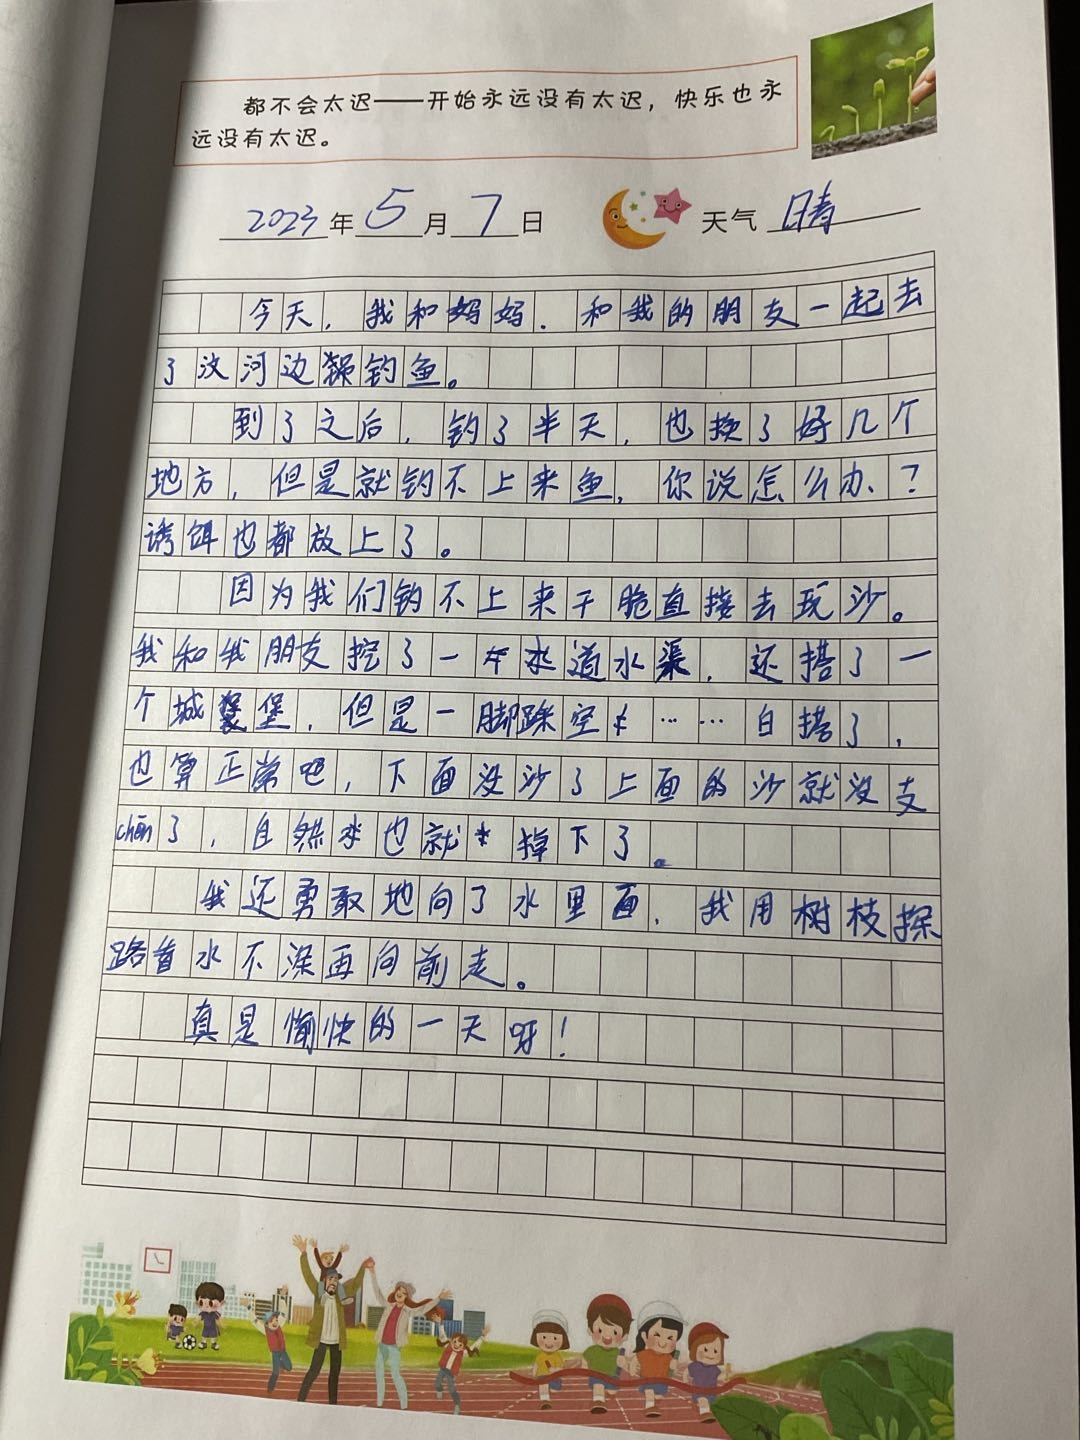 都不会太迟——开始永远没有太迟，快乐也永
远没有太迟。
2023年5月7日 天气 晴
今天，我和妈妈．和我的朋友一起去
了汶河边钓鱼。
到了之后，钓了半天，也换了好几个
地方，但是就钓不上来鱼，你说怎么办？
诱饵也都放上了。
因为我们钓不上来干脆直接去玩沙。
我和我朋友挖了一水道水渠，还搭了一
个城堡，但是一脚踩空……白搭了，
也算正常吧，下面没沙了上面的沙就没支
chēn了，自然也就掉下了。
我还勇敢地向了水里面，我用树枝探
路看水不深再向前走。
真是愉快的一天呀！